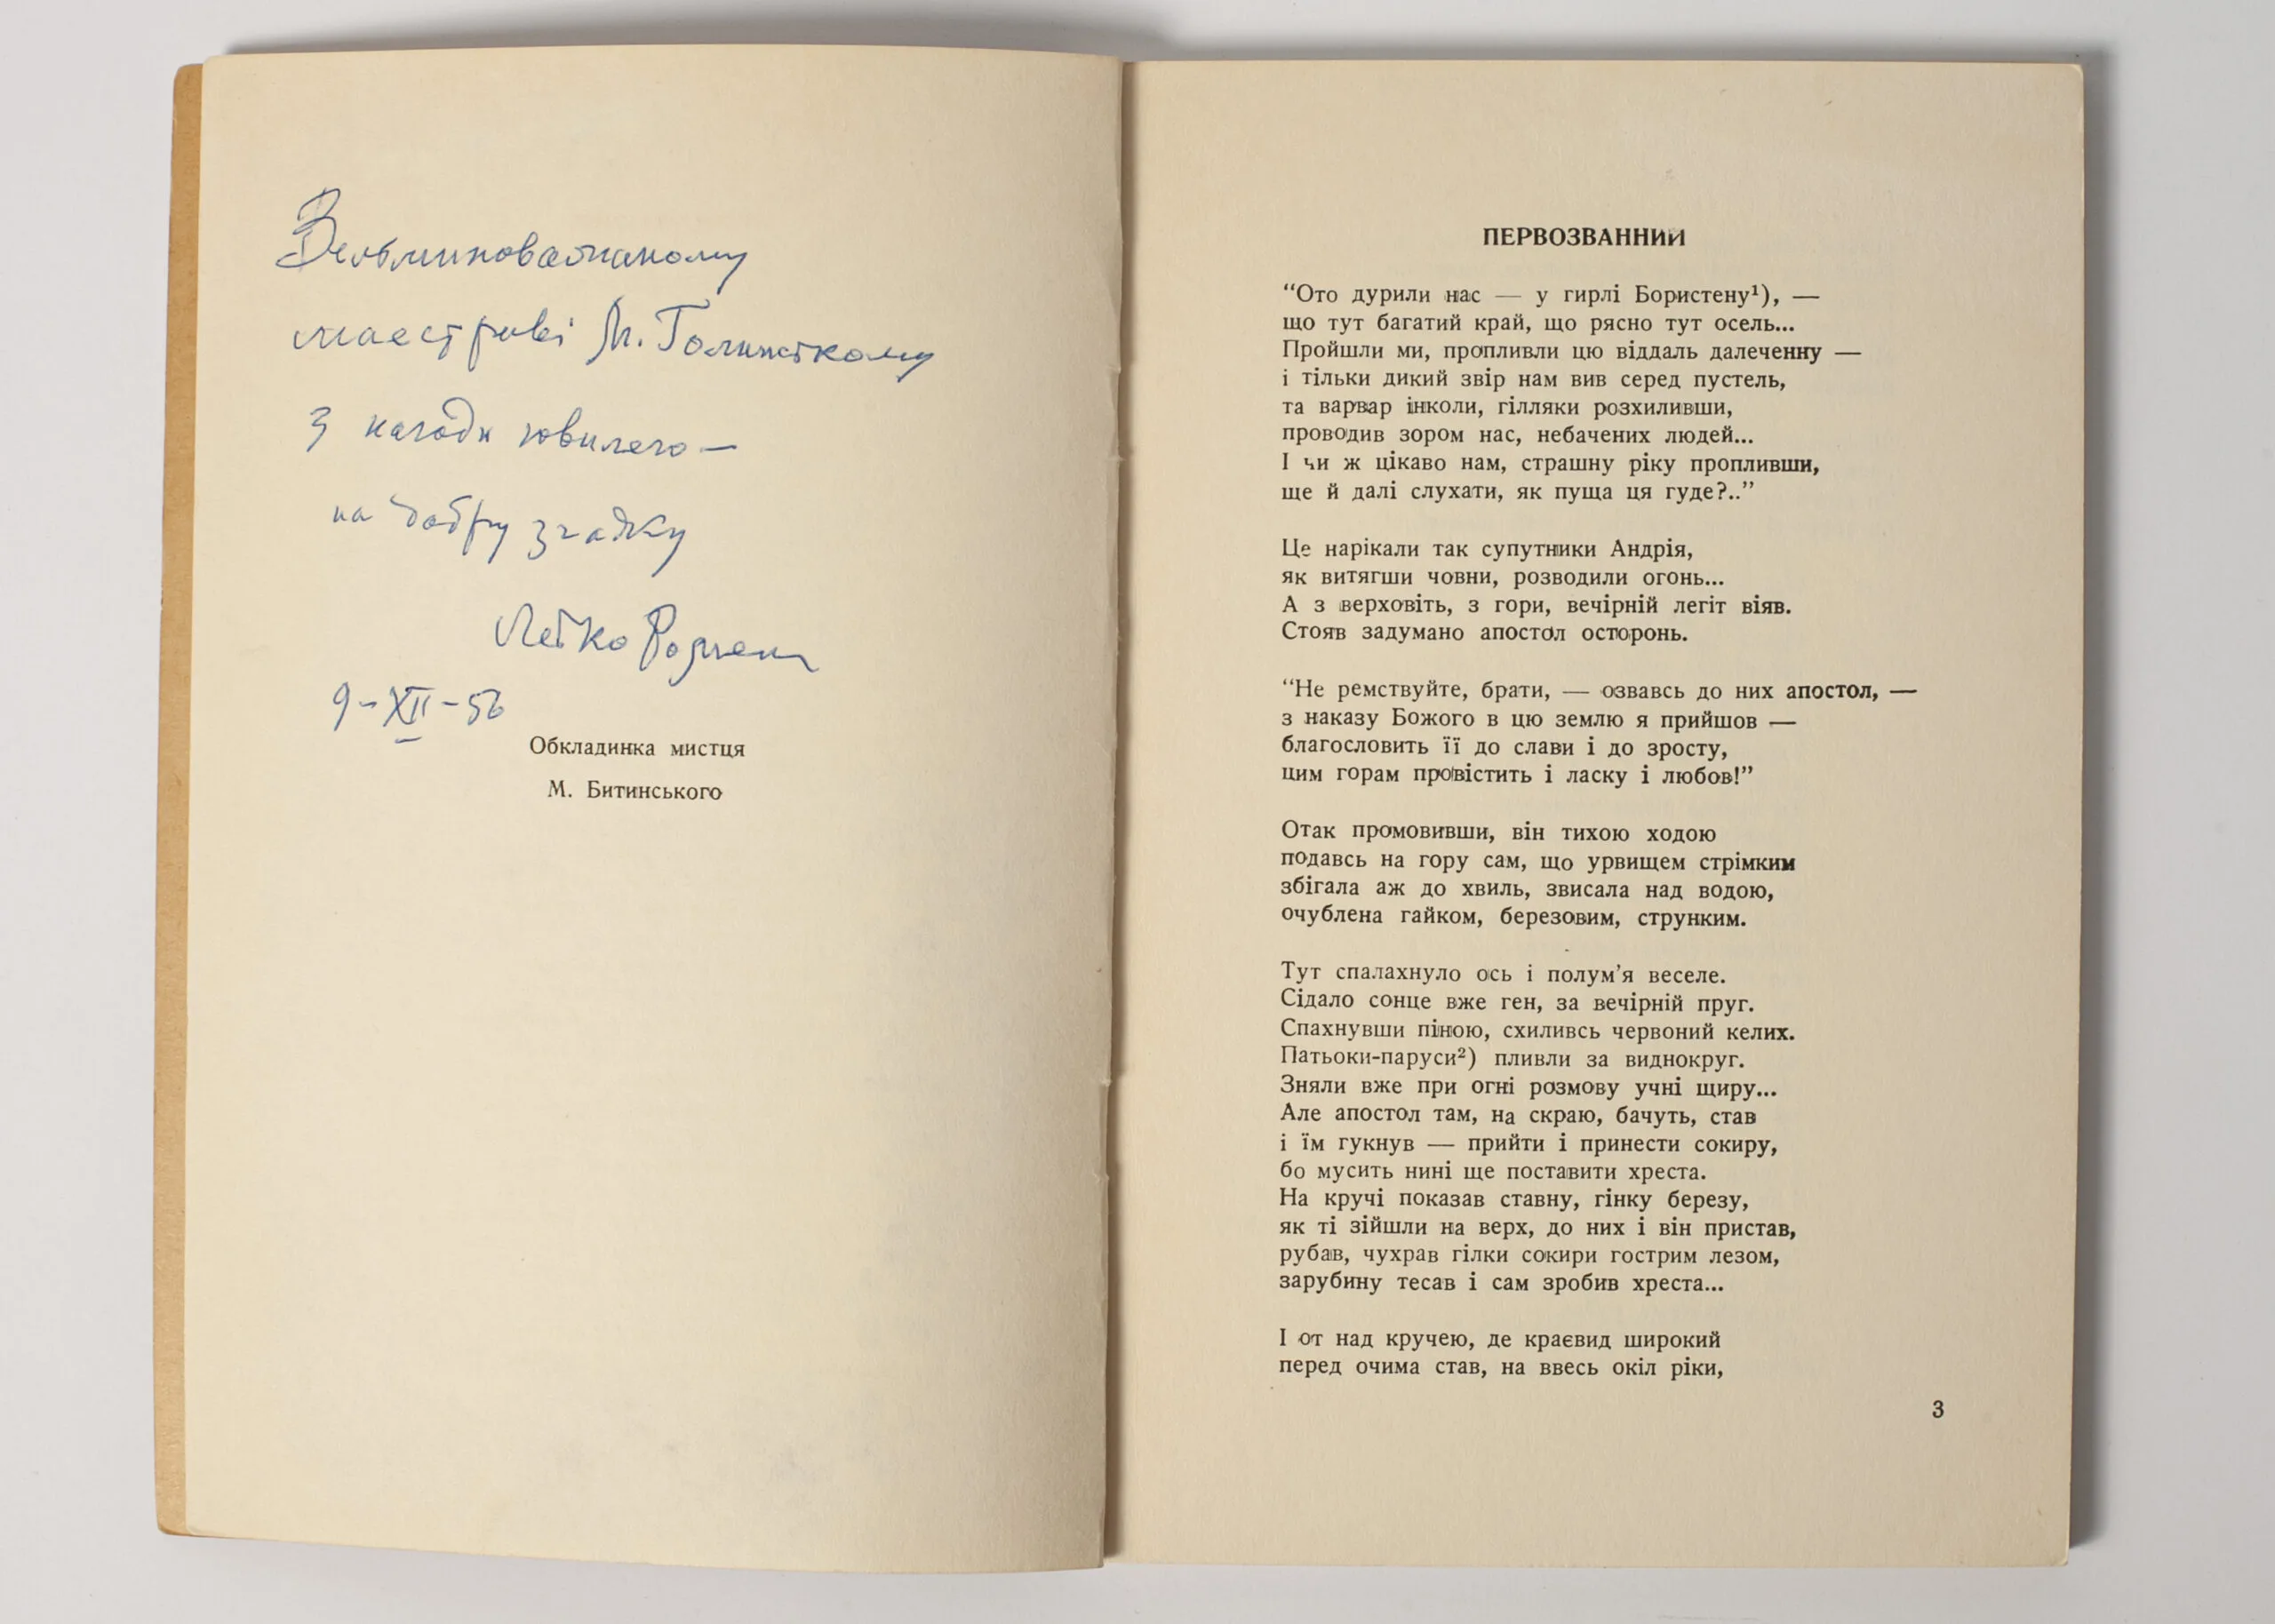 Вельмиповажаному
маестрові М. Голинському
З нагоди ювилею —
на добру згадку
Левко Ромен
9-XII-56
Обкладинка мистця
М. Битинського
ПЕРВОЗВАННИЙ
“Ото дурили нас — у гирлі Бористену¹), —
що тут багатий край, що рясно тут осель...
Пройшли ми, пропливли цю віддаль далеченну —
і тільки дикий звір нам вив серед пустель,
та варвар інколи, гілляки розхиливши,
проводив зором нас, небачених людей...
І чи ж цікаво нам, страшну ріку пропливши,
ще й далі слухати, як пуща ця гуде?..”
Це нарікали так супутники Андрія,
як витягши човни, розводили огонь...
А з верховіть, з гори, вечірній легіт віяв.
Стояв задумано апостол осторонь.
“Не ремствуйте, брати, — озвавсь до них апостол, —
з наказу Божого в цю землю я прийшов —
благословить її до слави і до зросту,
цим горам провістить і ласку і любов!”
Отак промовивши, він тихою ходою
подавсь на гору сам, що урвищем стрімким
збігала аж до хвиль, звисала над водою,
очублена гайком, березовим, струнким.
Тут спалахнуло ось і полум’я веселе.
Сідало сонце вже ген, за вечірній пруг.
Спахнувши піною, схиливсь червоний келих.
Патьоки-паруси²) пливли за виднокруг.
Зняли вже при огні розмову учні щиру...
Але апостол там, на скраю, бачуть, став
і їм гукнув — прийти і принести сокиру,
бо мусить нині ще поставити хреста.
На кручі показав ставну, гінку березу,
як ті зійшли на верх, до них і він пристав,
рубав, чухрав гілки сокири гострим лезом,
зарубину тесав і сам зробив хреста...
І от над кручею, де краєвид широкий
перед очима став, на ввесь окіл ріки,
3